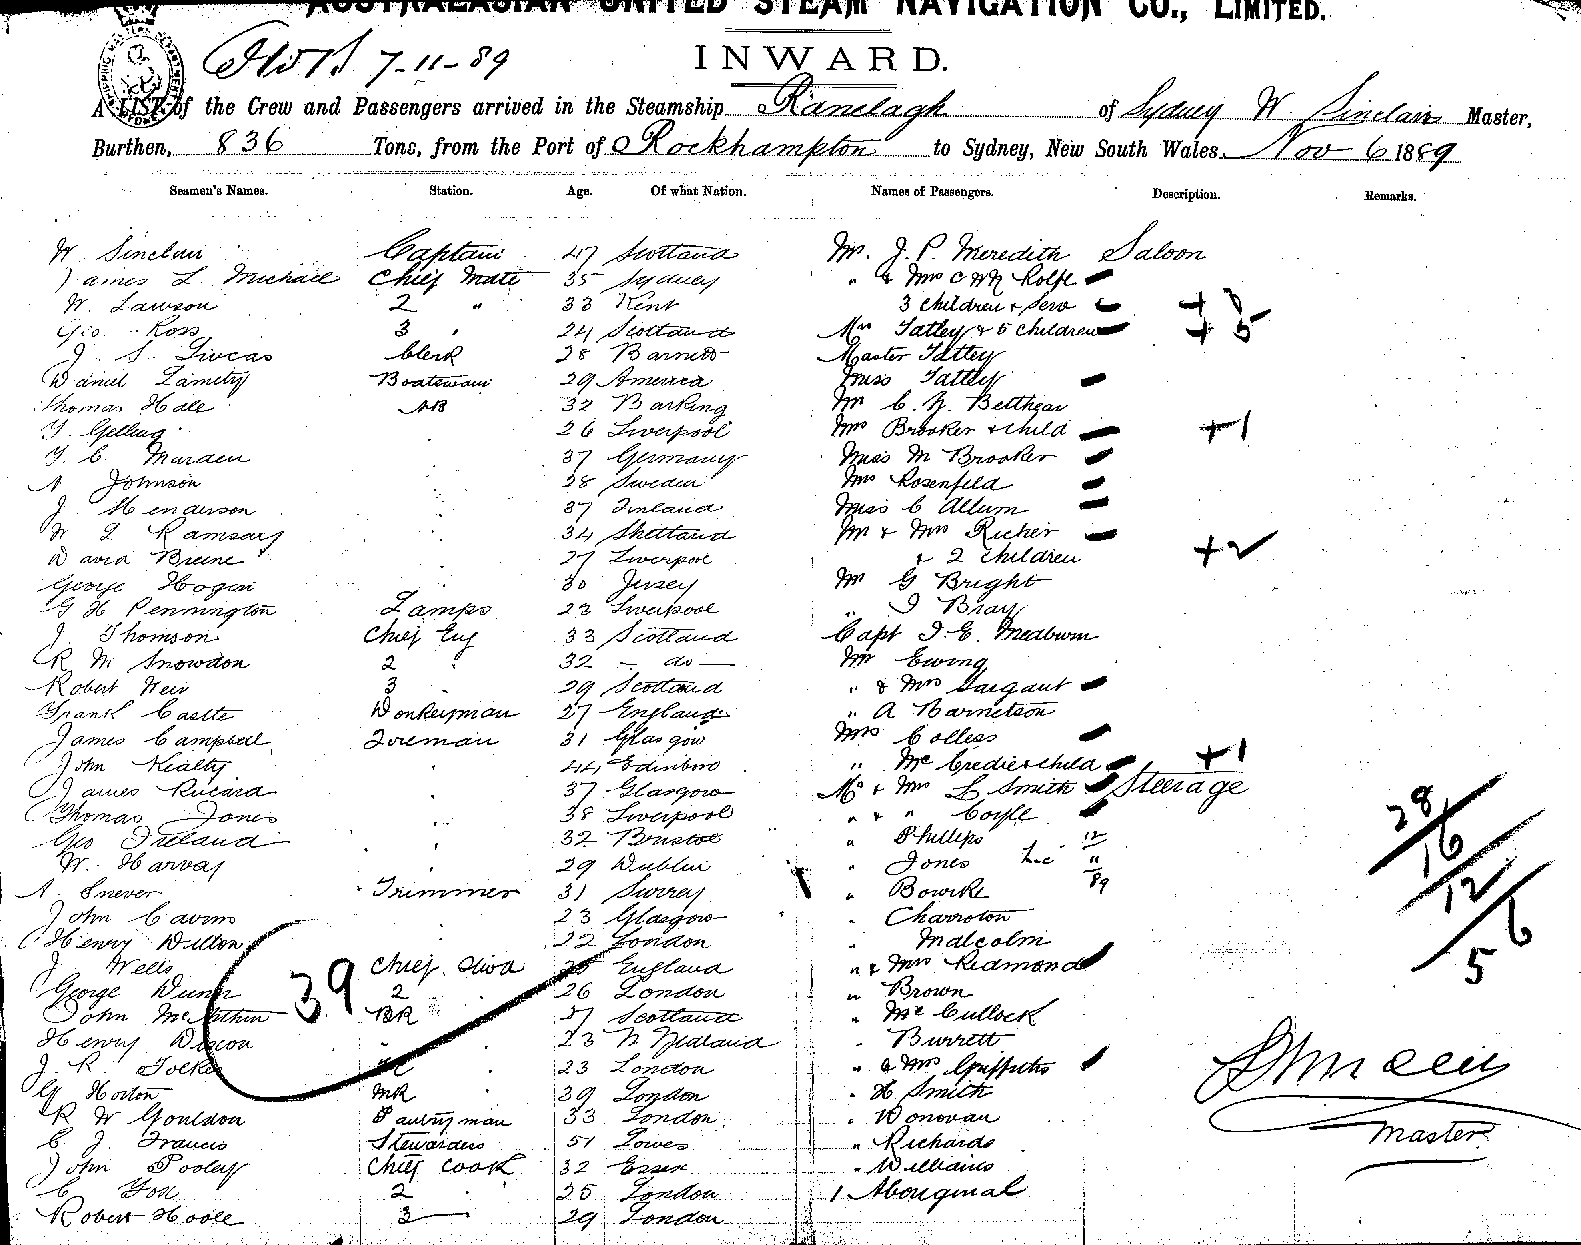 AUSTRALASIAN UNITED STEAM NAVIGATION CO., LIMITED.
7-11-89
INWARD.
A LIST of the Crew and Passengers arrived in the Steamship Ranelagh of Sydney W Sinclair Master,
Burthen, 836 Tons, from the Port of Rockhampton to Sydney, New South Wales. Nov 6 1889
Seamen's Names. Station. Age. Of what Nation. Names of Passengers. Description. Remarks.
W Sinclair Captain 47 Scotland Mr. J. P. Meredith Saloon
James L Michael Chief Mate 35 Sydney " & Mrs C W Rolfe
W. Lawson 2 " 33 Kent 3 Children & Serv + 3
Geo. Ross 3 " 24 Scotland Mrs Tatley & 5 Children + 5
J. S. Clerk 28 Barnet Master Tatley
Daniel Boatswain 29 America Miss Tatley
Thomas Hale AB 32 Barking Mr C.
26 Liverpool Mrs Brooker & child +1
37 Germany Miss M Brooker
Johnson 38 Sweden Mrs Rosenfeld
J. Henderson 37 Finland Miss C Allum
Ramsay 34 Shetland Mr & Mrs Richer
David 27 Liverpool & 2 children +2
George Hogan 30 Jersey Mr G Bright
G H Pennington Lamps 23 Liverpool " J Bray
J. Thomson Chief Eng 33 Scotland Capt J. E. Medburn
R M Snowdon 2 " 32 - do - Mr Ewing
Robert Weir 3 29 Scotland " & Mrs Sargant
Frank Castle Donkeyman 27 England " A Barnetson
James Campbell Foreman 31 Glasgow Mrs Colless
John Kealty 44 Edinboro " McCredie & child +1
James Ricard 37 Glasgow Mr & Mrs L Smith Steerage
Thomas Jones 38 Liverpool " & " Coyle 28
Geo Ireland 32 Bristol " Phillips 12 16
W. Harvey 29 Dublin " Jones " 12
A. Snever Trimmer 31 Surrey " Bowrke 89 6
John Cavins 23 Glasgow " Charroton 5
Henry Dutton 22 London " Malcolm
J. Wells Chief Stwd England " & Mrs Redmond
George Dunn 2 26 London " Brown
John 39 BR 27 Scotland " McCullock
Henry Dixon " 23 N Zealand " Burrett
J. R. 23 London " & Mrs Griffiths
G Horton MR 39 London " H Smith
R W Gouldon Pantryman 33 London " Donovan
C J. Francis Stewardess 51 Lowes " Richards
John Pooley Chief Cook 32 Essex " Williams
C. Fox 2 25 London 1 Aboriginal
Robert Hoole 3 29 London
Master